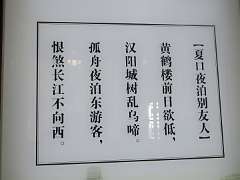 【夏口夜泊别友人】
黄鹤楼前日欲低，
汉阳城树乱乌啼。
孤舟夜泊东游客，
恨煞长江不向西。